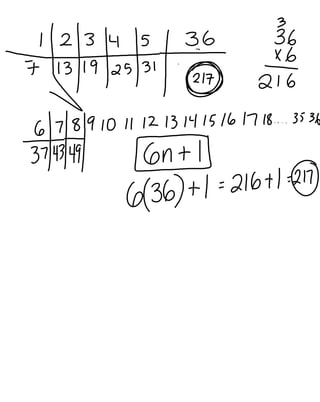 1 | 2 | 3 | 4 | 5 | 36
7 | 13 | 19 | 25 | 31 | 217
3
36
x6
216
6 | 7 | 8 | 9 10 11 12 13 14 15 16 17 18.... 35 36
37 | 43 | 49
6n+1
6(36)+1 = 216+1 = 217